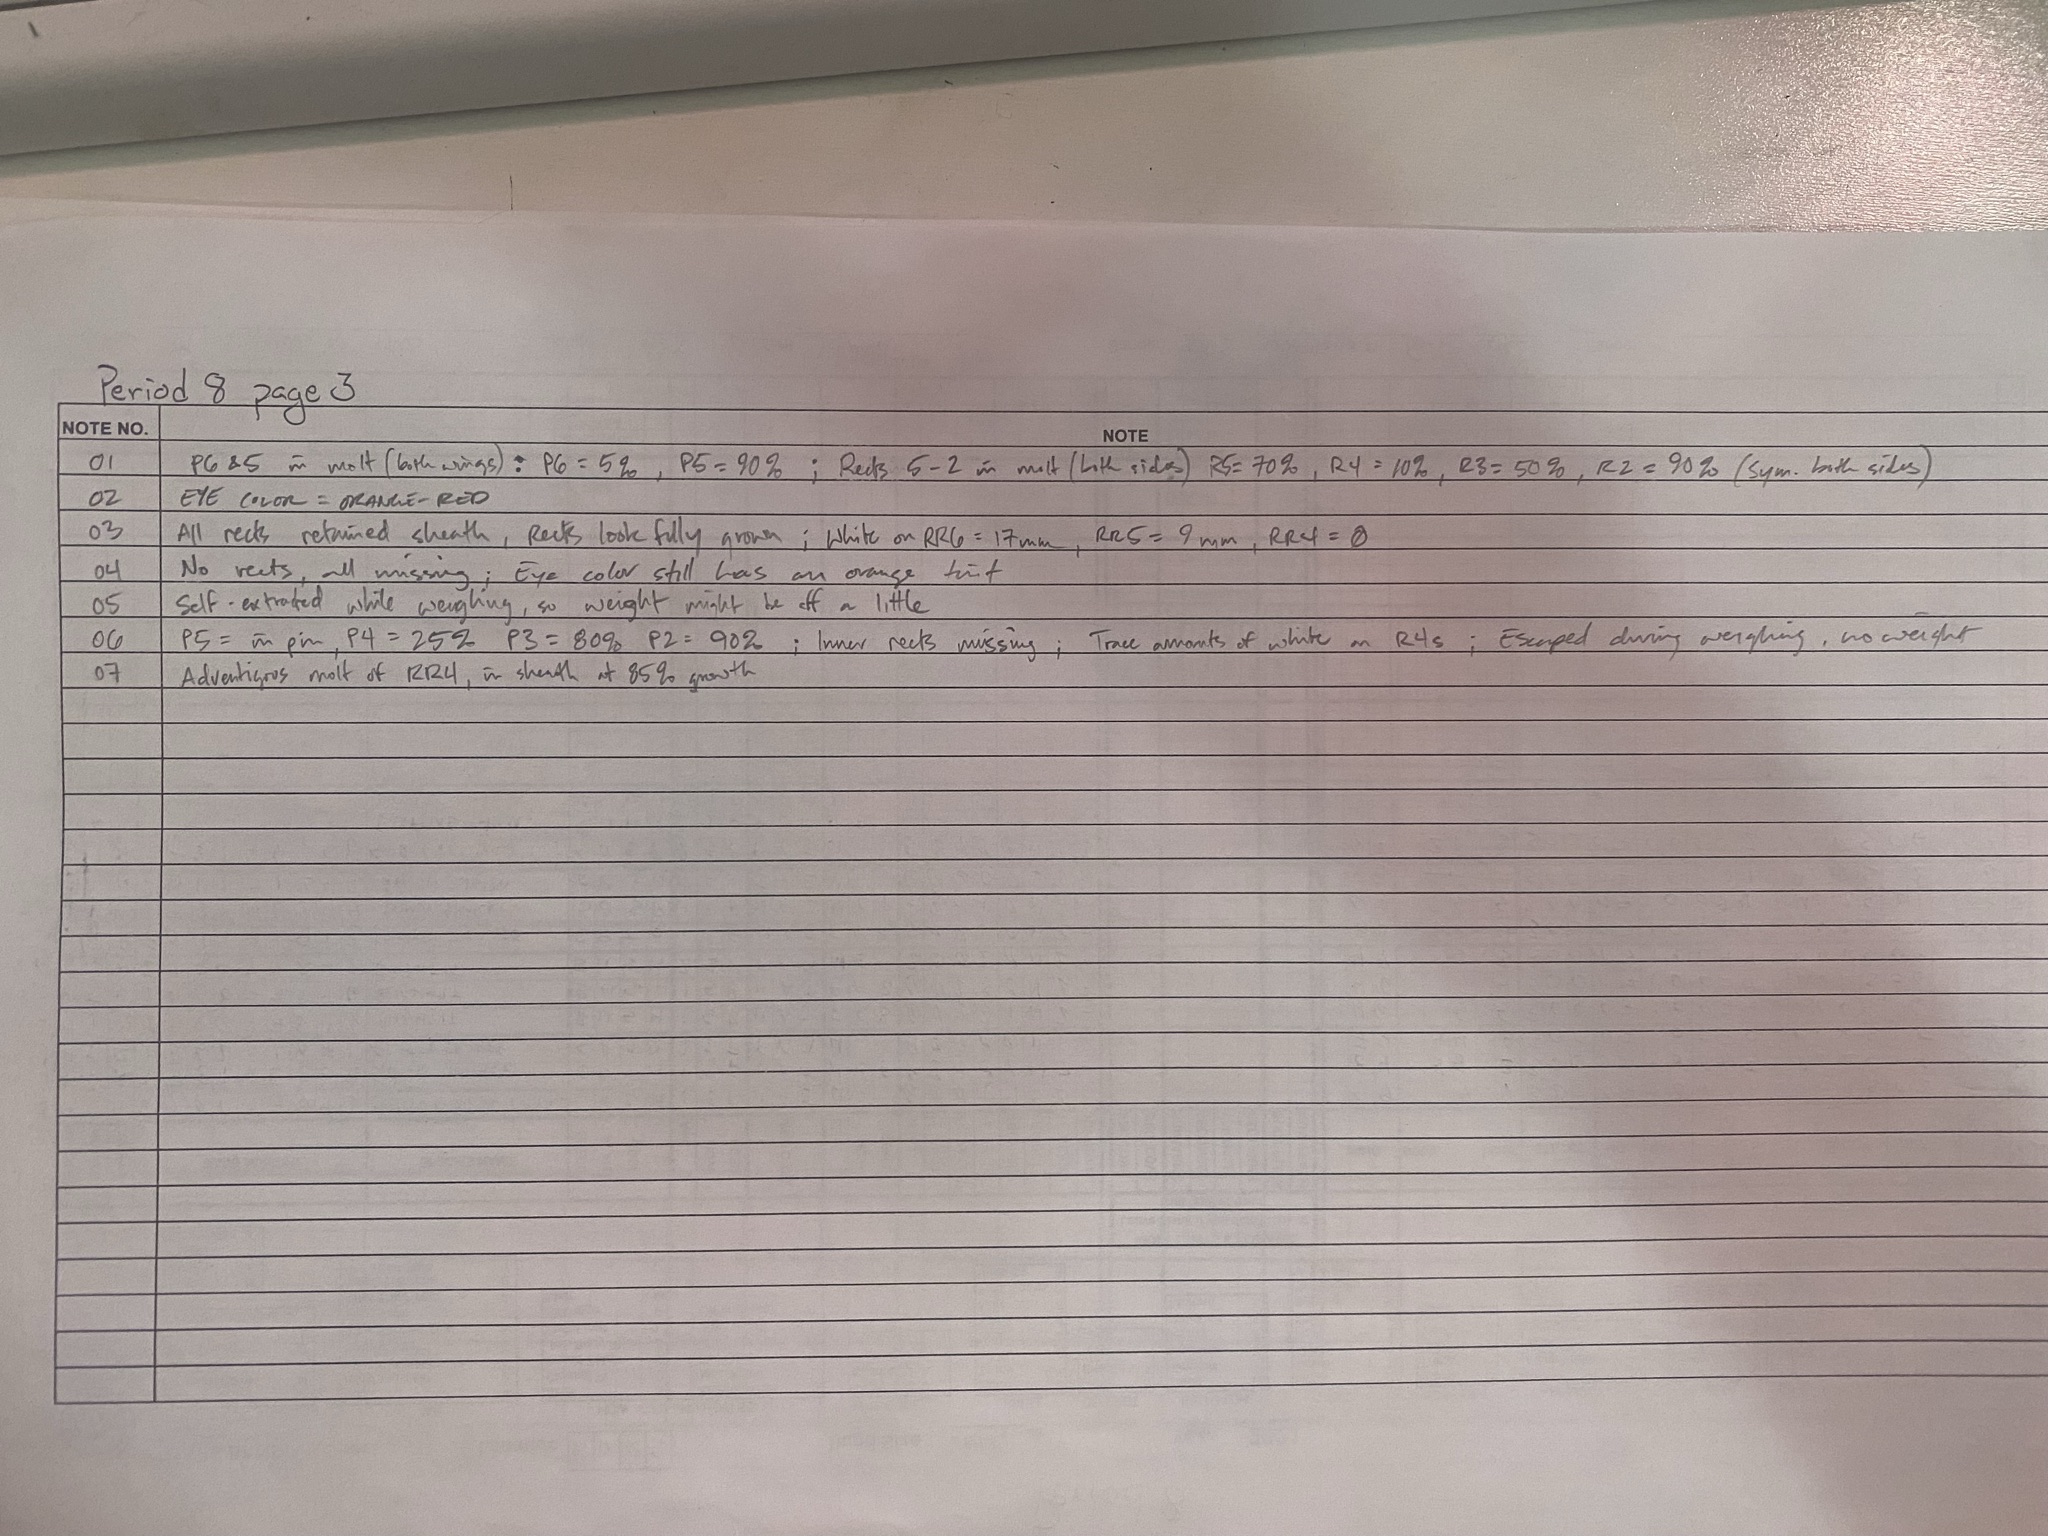 Period 8 page 3
NOTE NO. NOTE
01 P6 & 5 in molt (both wings): P6 = 5%, P5 = 90% ; Rects 5-2 in molt (both sides) R5= 70%, R4 = 10%, R3= 50%, R2 = 90% (sym. both sides)
02 EYE COLOR = ORANGE-RED
03 All rects retained sheath, Rects look fully grown ; White on RR6 = 17mm, RR5 = 9mm, RR4 = 0
04 No rects, all missing; Eye color still has an orange tint
05 Self-extracted while weighing, so weight might be off a little
06 P5 = in pin, P4 = 25% P3 = 80% P2 = 90% ; Inner rects missing ; Trace amounts of white on R4s ; Escaped during weighing, no weight
07 Adventigous molt of RR4, in sheath at 85% growth